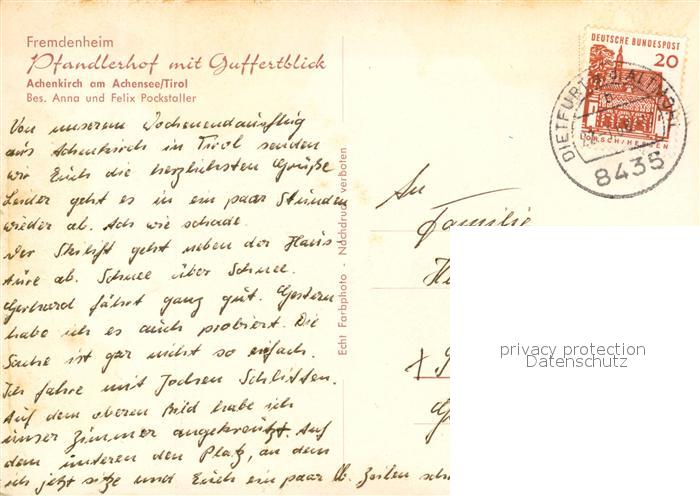 Fremdenheim
Pfandlerhof mit Guffertblick
Achenkirch am Achensee/Tirol
Bes. Anna und Felix Pockstaller
Von unserem Wochenendausflug
aus Achenkirch in Tirol senden
wir Euch die herzlichsten Grüße
Leider geht es in ein paar Stunden
wieder ab. Ach wie schade.
Der Skilift geht neben der Haus
türe ab. Schnee über Schnee.
Gerhard fährt ganz gut. Gestern
habe ich es auch probiert. Die
Sache ist gar nicht so einfach.
Ich fahre mit Jochen Schlitten.
Auf dem oberen Bild habe ich
unser Zimmer angekreuzt. Auf
dem unteren den Platz, an dem
ich jetzt sitze und Euch ein paar lb. Zeilen
Echt Farbphoto - Nachdruck verboten
DEUTSCHE BUNDESPOST
20
LORSCH/HESSEN
DIETFURT A.D. ALTMÜHL
8435
An
Familie
privacy protection
Datenschutz